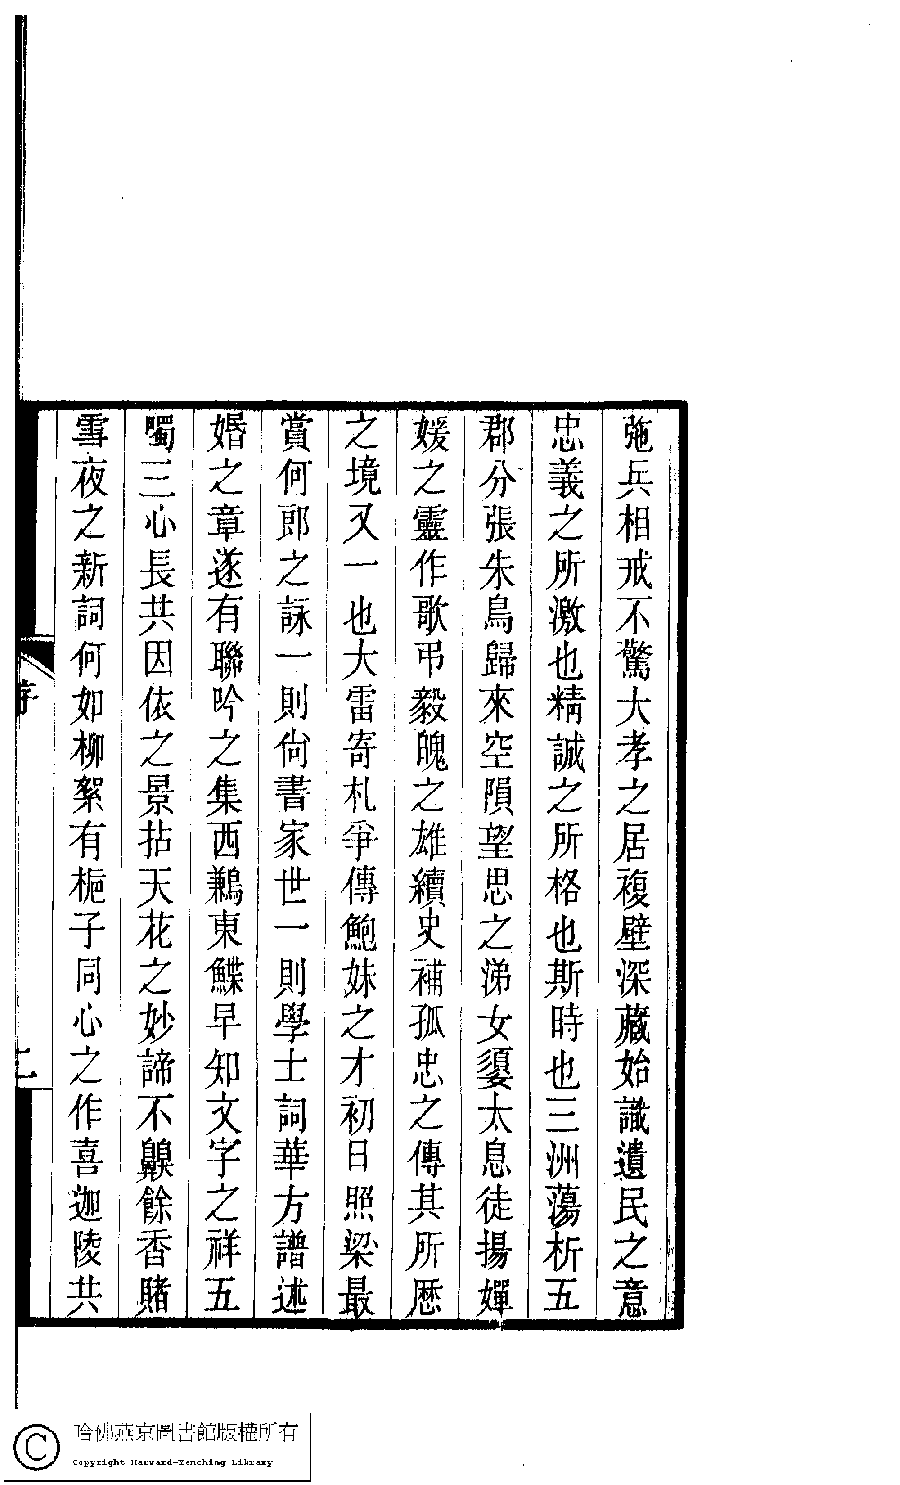 弛兵相戒不驚大孝之居複壁深藏始識遺民之意
忠義之所激也精誠之所格也斯時也三洲蕩析五
郡分張朱鳥歸來空隕望思之涕女嬃太息徒揚嬋
媛之靈作歌弔毅魄之雄續史補孤忠之傳其所歷
之境又一也大雷寄札爭傳鮑妹之才初日照梁最
賞何郎之詠一則尙書家世一則學士詞華方譜述
婚之章遂有聯吟之集西鶼東鰈早知文字之祥五
噣三心長共因依之景拈天花之妙諦不齅餘香賭
雪夜之新詞何如柳絮有梔子同心之作喜迦陵共
序
二
哈佛燕京圖書館版權所有
Copyright Harvard-Yenching Library